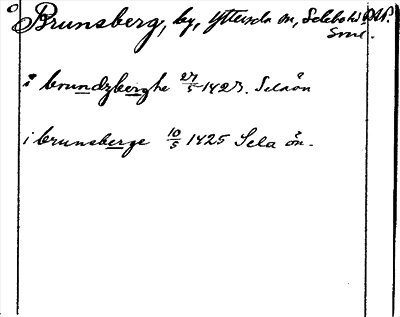 Brunsberg, by, Yttersela sn, Selebo hd
Srml.
i brundzberghe 27/5 1423. Selaön
i brunsberge 10/5 1425 Sela ön.